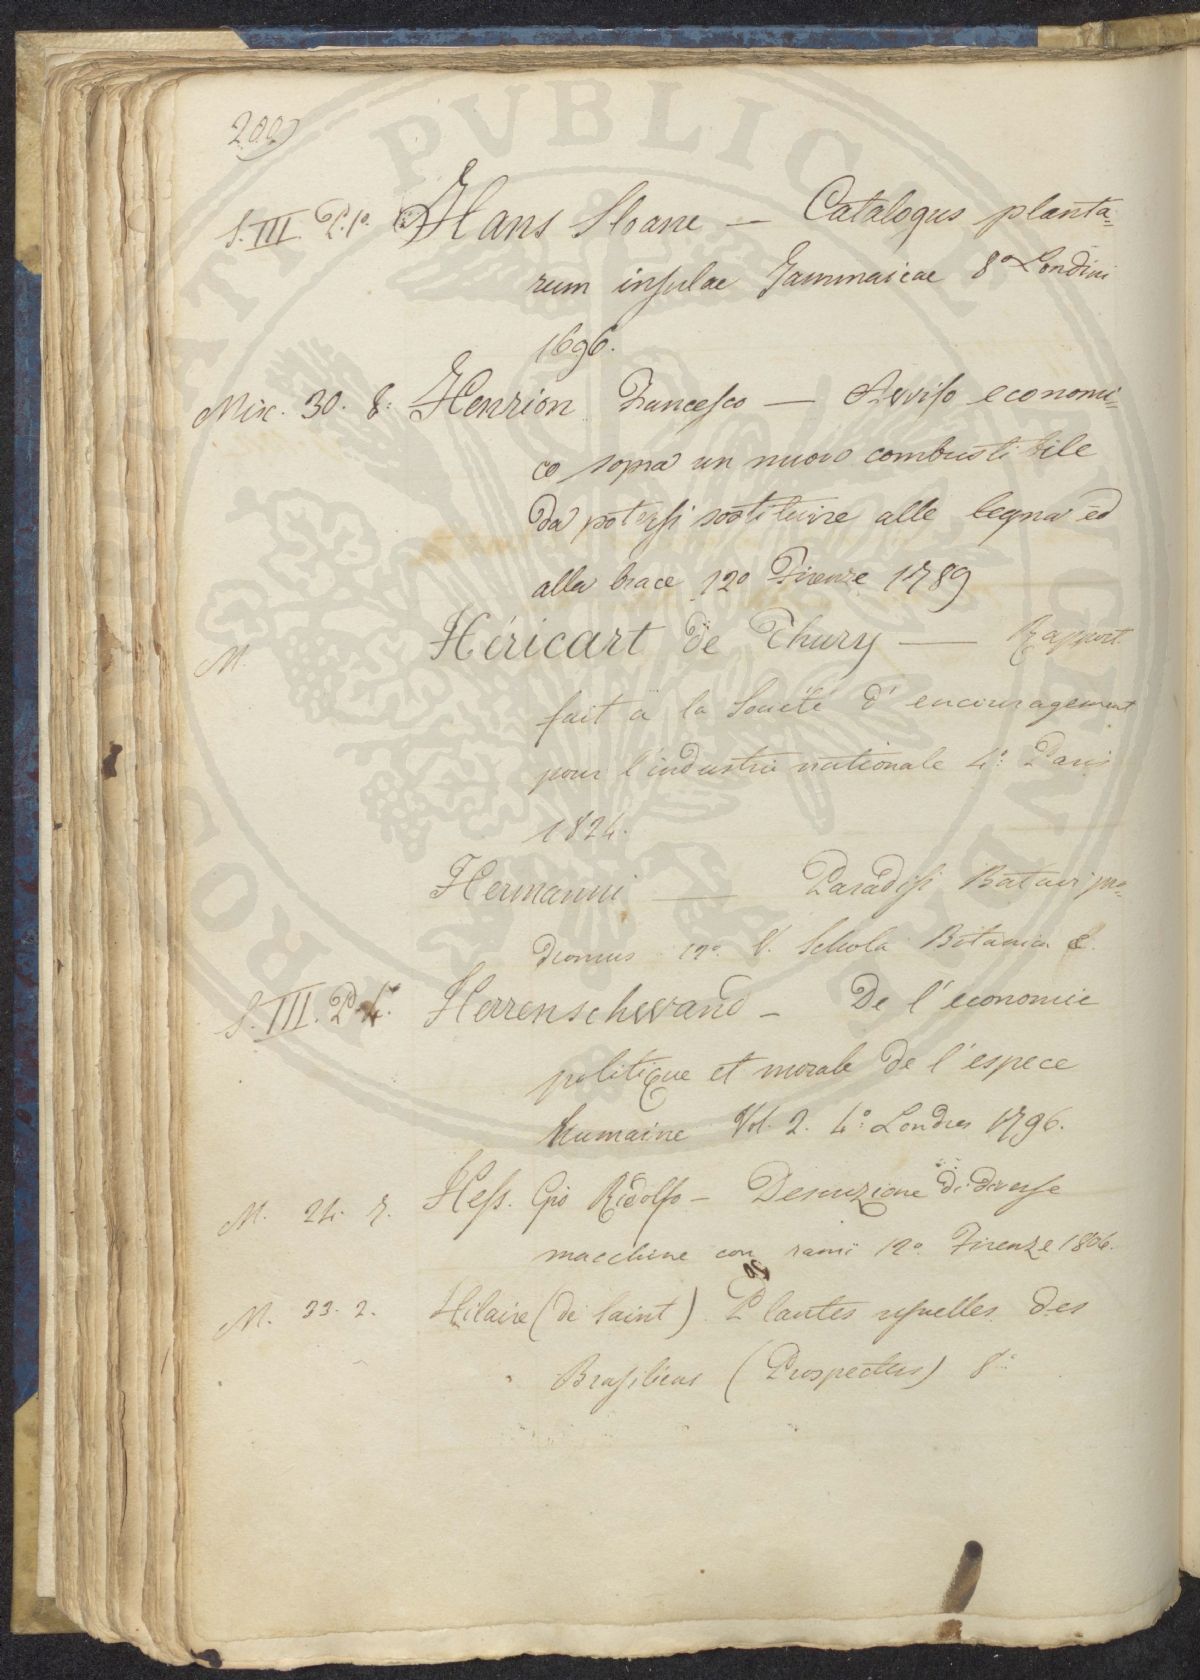 200
S. III P. 1º. Hans Sloane — Catalogus planta=
rum insulae Jammaicae 8º Londini
1696.
Mix. 30. 8. Henrion Francesco — Avviso economi=
co sopra un nuovo combustibile
da potersi sostituire alle legna ed
alla brace 12º Firenze 1789
M. Héricart de Thury — Rapport
fait a la Societé d'encouragement
pour l'industrie nationale 4º: Paris
1824.
Hermanni — Paradisi Batavi pro=
dromus 12º V. Schola Botanica &.
S. III. P. 4. Herrenschwand — De l'economie
politique et morale de l'espece
humaine Vol. 2. 4º: Londres 1796.
M. 24. 7. Hess. Gio Ridolfo — Descrizione di diverse
macchine con rami 12º Firenze 1806.
M. 33. 2. Hilaire (de Saint) Plantes usuelles des
Brasiliens (Prospectus) 8º